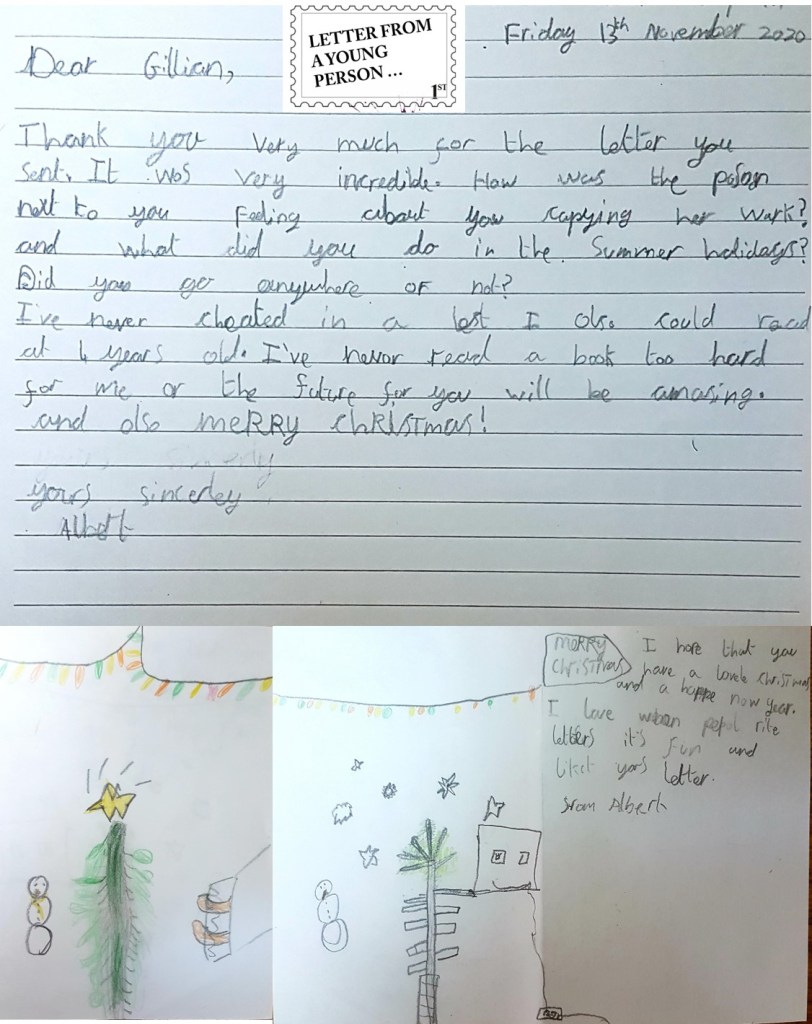 LETTER FROM
A YOUNG
PERSON ...
1ST
Friday 13th November 2020
Dear Gillian,
Thank you very much for the letter you
sent. It was very incredible. How was the
next to you feeling about you copying her work?
and what did you do in the Summer holidays?
Did you go anywhere or not?
I've never cheated in a test I also could read
at 4 years old. I've never read a book too hard
for me or the future for you will be amasing.
and also meRRy chRISTmas!
yours sincerley
Albert
meRRy
chRiSTmas
I hope that you
have a lovele chrisTmas
and a happe new year.
I love when pepol rite
letters it's fun and
I liket yors letter.
from Albert